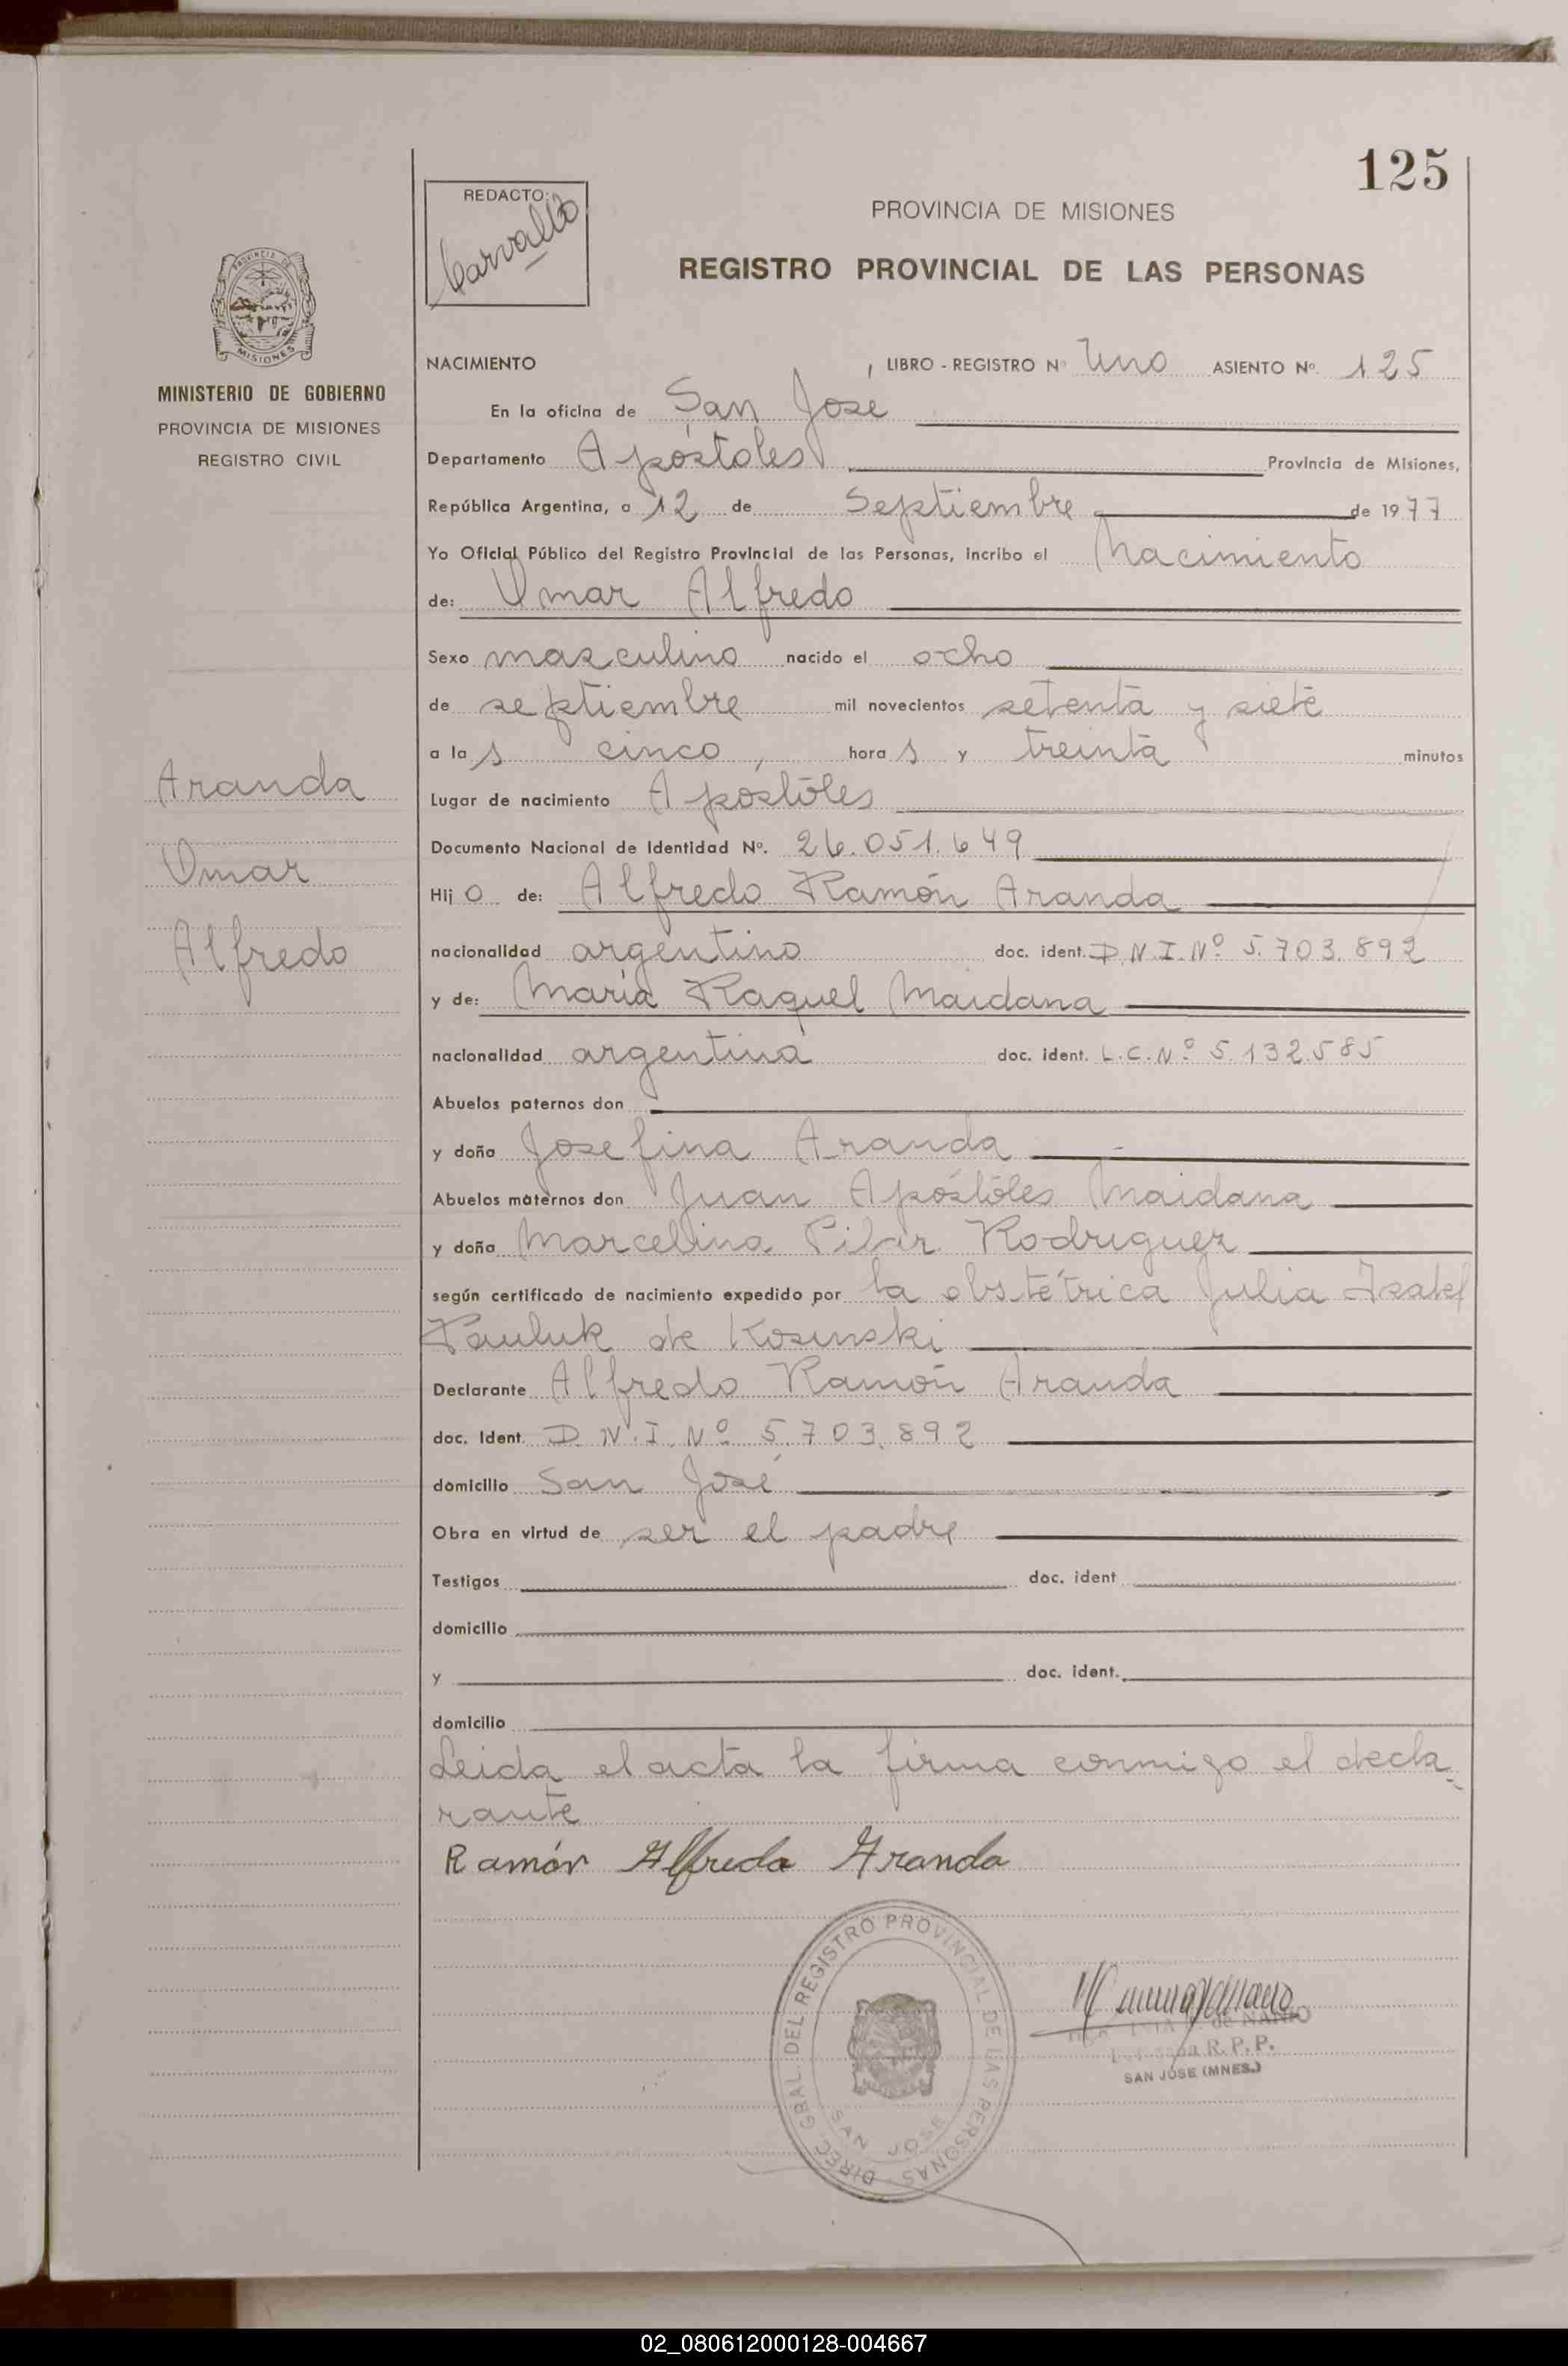 125
REDACTO:
Carvallo
PROVINCIA DE MISIONES
REGISTRO PROVINCIAL DE LAS PERSONAS
MINISTERIO DE GOBIERNO
PROVINCIA DE MISIONES
REGISTRO CIVIL
NACIMIENTO , LIBRO - REGISTRO Nº Uno ASIENTO Nº. 125
En la oficina de San Jose
Departamento Apóstoles Provincia de Misiones,
República Argentina, a 12 de Septiembre de 1977
Yo Oficial Público del Registro Provincial de las Personas, incribo el Nacimiento
de: Omar Alfredo
Sexo masculino nacido el ocho
de septiembre mil novecientos setenta y siete
a la s cinco, hora s y treinta minutos
Aranda
Omar
Alfredo
Lugar de nacimiento Apóstoles
Documento Nacional de Identidad Nº. 26.051.649
Hij o de: Alfredo Ramón Aranda
nacionalidad argentino doc. ident. D.N.I. Nº 5.703.892
y de: María Raquel Maidana
nacionalidad argentina doc. ident. L.C. Nº 5.132.585
Abuelos paternos don
y doña Josefina Aranda
Abuelos maternos don Juan Apóstoles Maidana
y doña Marcelina Pilar Rodriguez
según certificado de nacimiento expedido por la obstétrica Julia Isabel
Pauluk de Kosinski
Declarante Alfredo Ramón Aranda
doc. Ident. D.N.I. Nº 5.703.892
domicilio San José
Obra en virtud de ser el padre
Testigos doc. ident
domicilio
y doc. ident.
domicilio
Leida el acta la firma conmigo el decla-
rante
Ramón Alfredo Aranda
DIREC. GRAL. DEL REGISTRO PROVINCIAL DE LAS PERSONAS
SAN JOSE
de NANNO
R. P. P.
SAN JOSE (MNES.)
02_080612000128-004667